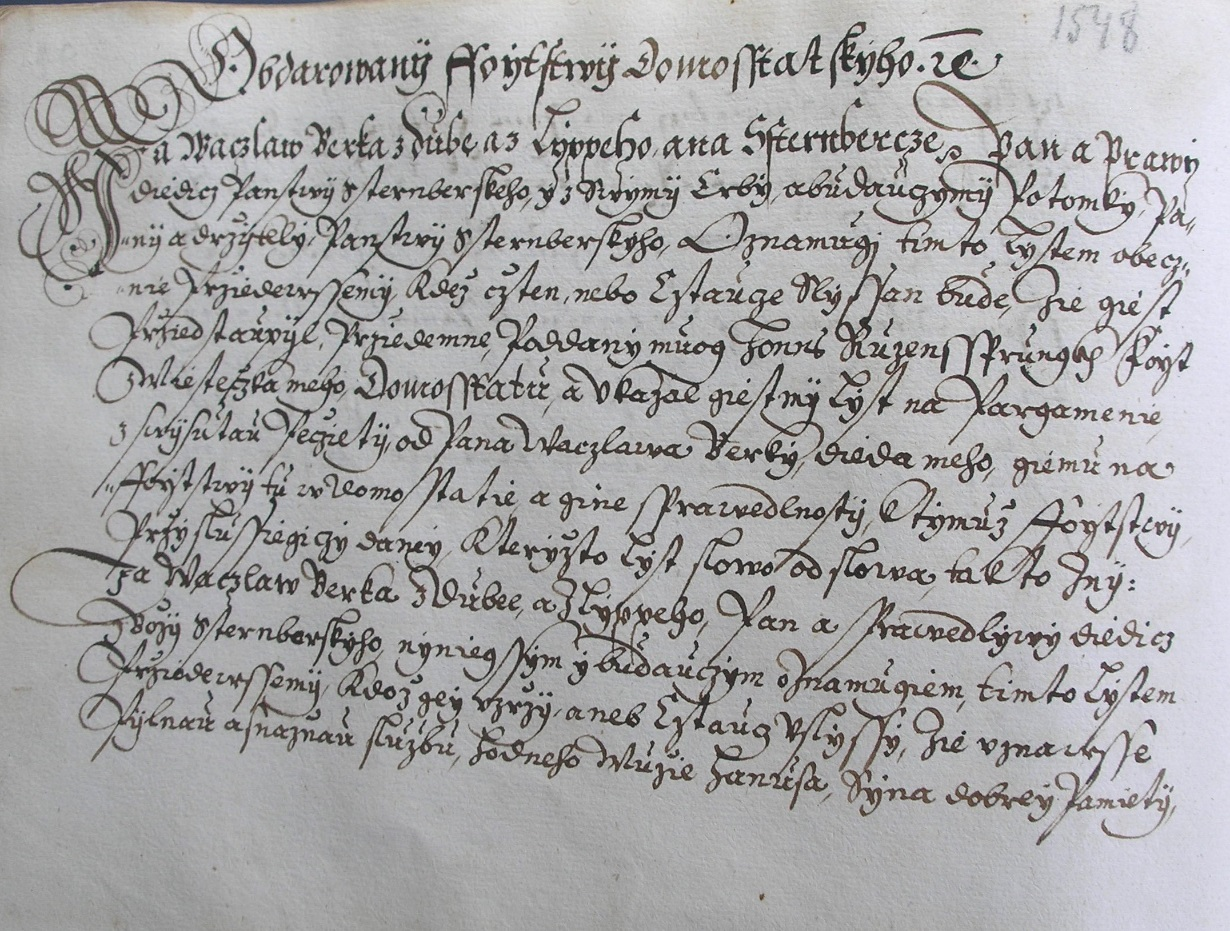 1548
Obdarowanij Ffoytstwij Domosstatskyho. ꝛc̃.
Ja Waczlaw Berka z Dube, a z Lyppeho, a na Ssternbercze, Pan a Prawij
diedicz Panstwij Sternberskeho, y z Swymij Erby, a budauczymij Potomky, Pa-
nij a drzitely, Panstwij Sternberskyho, Oznamugj timto Lystem obecz-
nie Przedewssemij, Kdez czten, nebo Cztaucze Slyssan bude, Zie giest
Przedstaupyl, Przedemne, Poddany muog Honns Ruzenssprungkh Foyt
z Miesteczka meho, Domosstatu, a Vkazal giest mij Lyst na Pargamenie,
z wysutau Peczetij, od Pana Waczlawa Berky, dieda meho, giemu na
Ffoytstwij tu w Domostatie, a gine sprawedlnostij, Ktymuz Ffoytstwij,
Przyslussiegiczy daney, Kteryzto Lyst slowo od slowa, takto Znij:
Ja Waczlaw Berka z Dubee, a z Lyppeho, Pan a sprawedlywy diedicz
zbozij Sternberskyho, nyniegssym y budauczym oznamugiem, timto Lystem
Przedewssemij, Kdoz gey vzrzij, aneb Cztaucz Vslyssy, Zie vznawsse
Pylnau a snaznau sluzbu, hodneho Muzie Hanusa, Syna dobrey Pamietij,